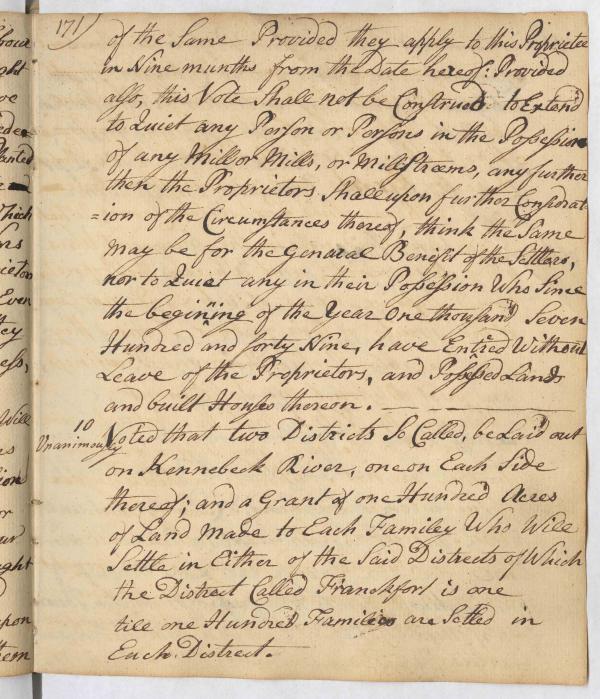 171)
of the Same Provided they apply to this Proprietee
in Nine munths from the Date hereof: Provided
also, this Vote Shall not be Construct to Extend
to Quiet any Person or Persons in the Possession
of any Mill or Mills, or Mill Streems, any further
then the Proprietors Shall upon further Considerat
=ion of the Circumstances thereof, think the Same
may be for the General Benefit of the Settlers,
nor to Quiet any in their Possession Who Sime
the begining of the Year One thousand Seven
Hundred and forty Nine, have Entred Without
Leave of the Proprietors, and Possessed Lands
and built Houses thereon.
10
Unanimously
Voted that two Districts So Called, be Laid out
on Kennebeck River, one on Each Side
thereof; and a Grant of one Hundred Acres
of Land made to Each Familey Who Will
Settle in Either of the Said Districts of Which
the Distrect Called Franckfort is one
till one Hundred Families are Setled in
Each Distrect.